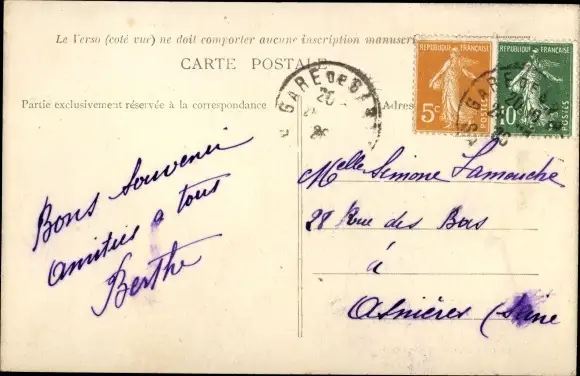 Le Verso (coté vue) ne doit comporter aucune inscription
CARTE POSTALE
Partie exclusivement réservée à la correspondance
Adres
REPUBLIQUE FRANÇAISE
5c
POSTES
REPUBLIQUE FRANÇAISE
10
POSTES
GARE DE
20
GARE
Bons Souvenir
amitiés a tous
Berthe
Melle Simone Lamouche
28 Rue des Bas
à
Asnières (Seine